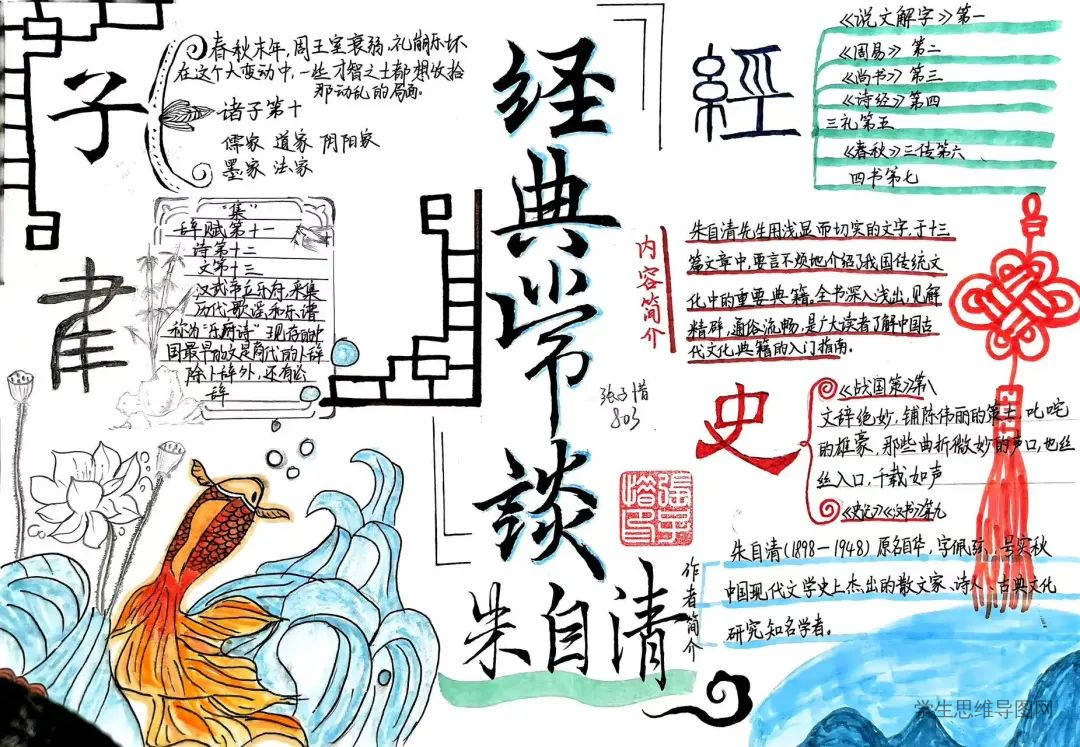 子
春秋末年，周王室衰弱，礼崩乐坏
在这个大变动中，一些才智之士都想收拾
那动乱的局面。
诸子第十
儒家 道家 阴阳家
墨家 法家
"集"
辞赋第十一
诗第十二
文第十三
汉武帝立乐府，采集
历代歌谣和乐谱
称为"乐府诗"现存的中
国最早的文是商代的卜辞
除卜辞外，还有
辞
经典常谈
朱自清
张子惜
803
經
《说文解字》第一
《周易》第二
《尚书》第三
《诗经》第四
三礼第五
《春秋》三传第六
四书第七
内容简介
朱自清先生用浅显而切实的文字，于十三
篇文章中，要言不烦地介绍了我国传统文
化中的重要典籍，全书深入浅出，见解
精辟，通俗流畅，是广大读者了解中国古
代文化典籍的入门指南。
史
《战国策》第八
文辞绝妙，铺陈伟丽的策士，叱咤
的雄豪，那些曲折微妙的声口，也丝
丝入口，千载如声
《史记》《汉书》第九
作者简介
朱自清(1898—1948)原名自华，字佩弦，号实秋
中国现代文学史上杰出的散文家、诗人、古典文化
研究知名学者。
学生思维导图网